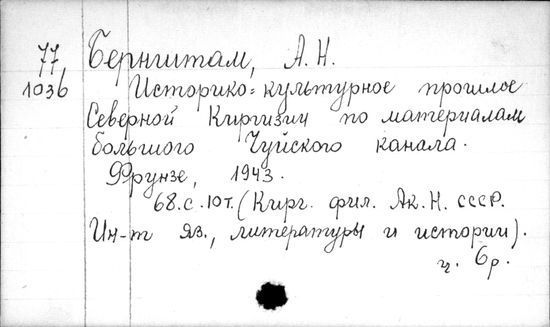 77 Бернштам, А. Н.
1036 Историко-культурное прошлое
Северной Киргизии по материалам
большого Чуйского канала.
Фрунзе, 1943.
68.с.10т. (Кирг. фил. Ак. Н. СССР.
Ин-т яз., литературы и истории).
ц. 6р.